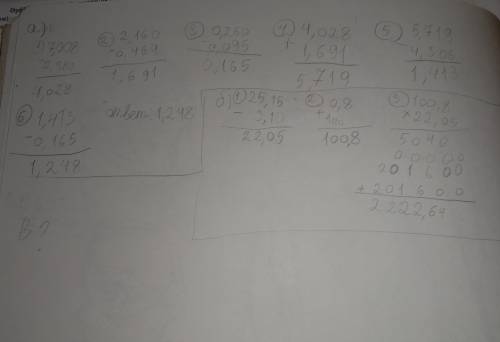 а)
② 2,160
- 0,469
1,691
③ 0,260
- 0,095
0,165
④ 4,028
+ 1,691
5,719
⑤ 5,719
1,413
⑥ 1,413
- 0,165
1,248
ответ: 1,248
б) ① 25,15
- 3,10
22,05
② 0,8
+ 100
100,8
③ 100,8
× 22,05
5040
00000
201600
+ 201600
2222,64
В?